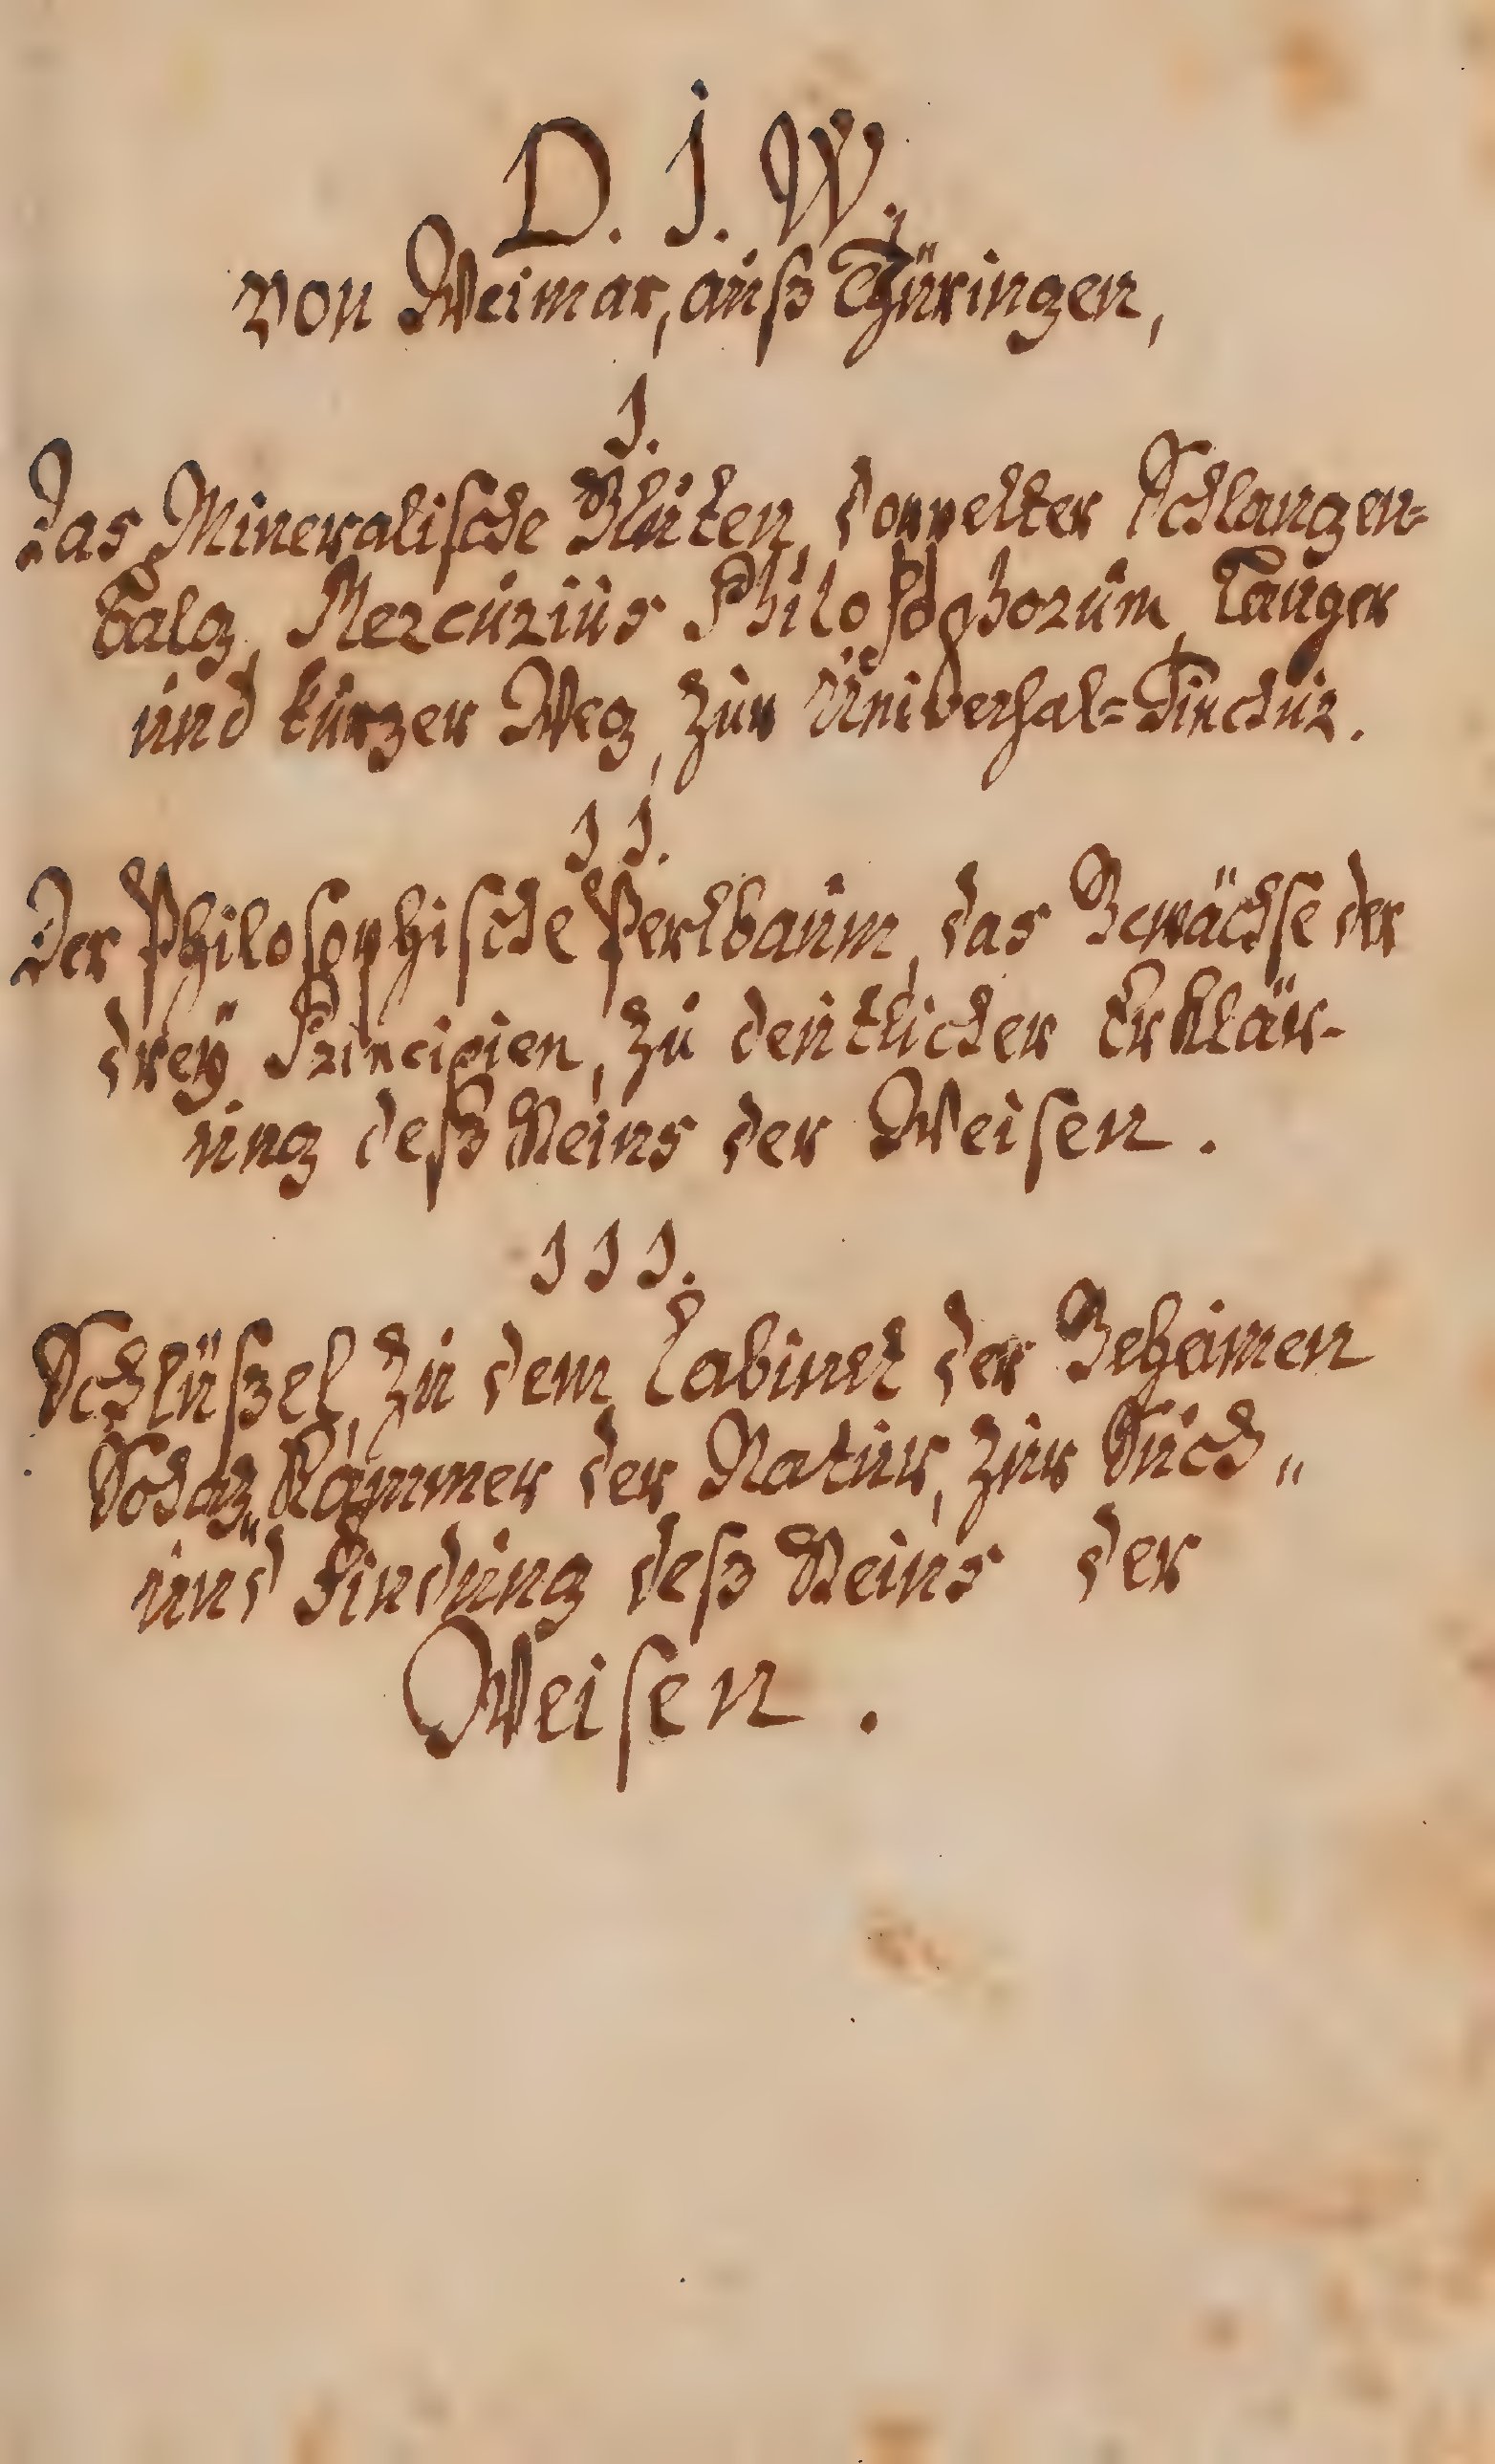 D. J. W.
von Weimar, auß Thüringen,
I.
Das Mineralische Gluten, doppelter Schlangen=
balg, Mercurius Philosophorum, langer
und kurzer Weg, zur Universal=Tinctur.
II.
Der Philosophische Perlbaum, das Gewächse der
dreÿ Principien, zu deutlicher Erklär-
ung deß Steins der Weisen.
III.
Schlüßel, zu dem Cabinet der Geheimen
Schaz„Kammer der Natur, zur Such„
und Findung deß Steins der
Weisen.